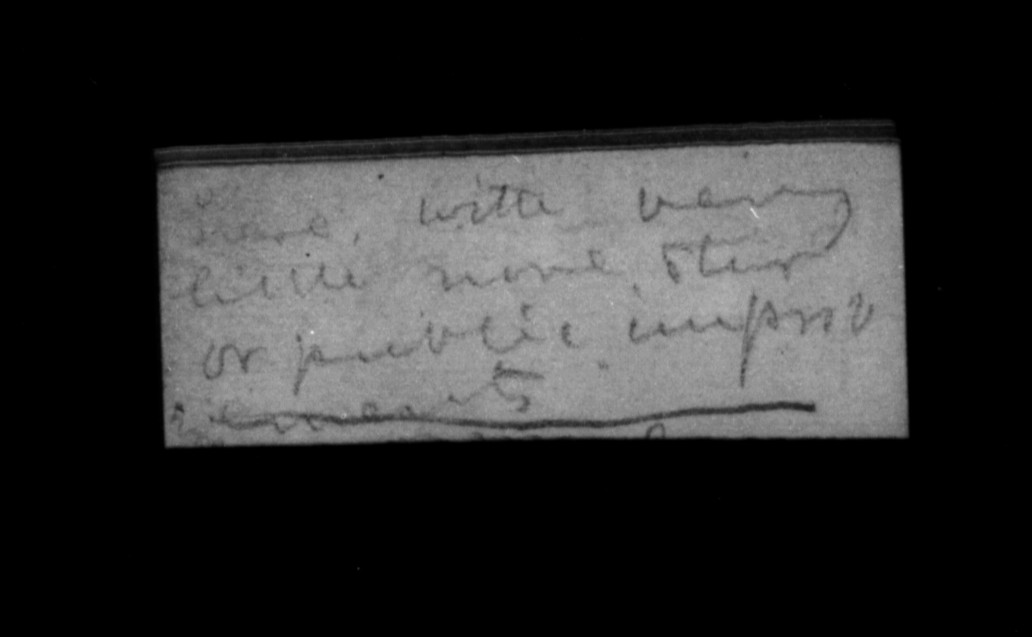 here, with very
little more
or public improv
ements